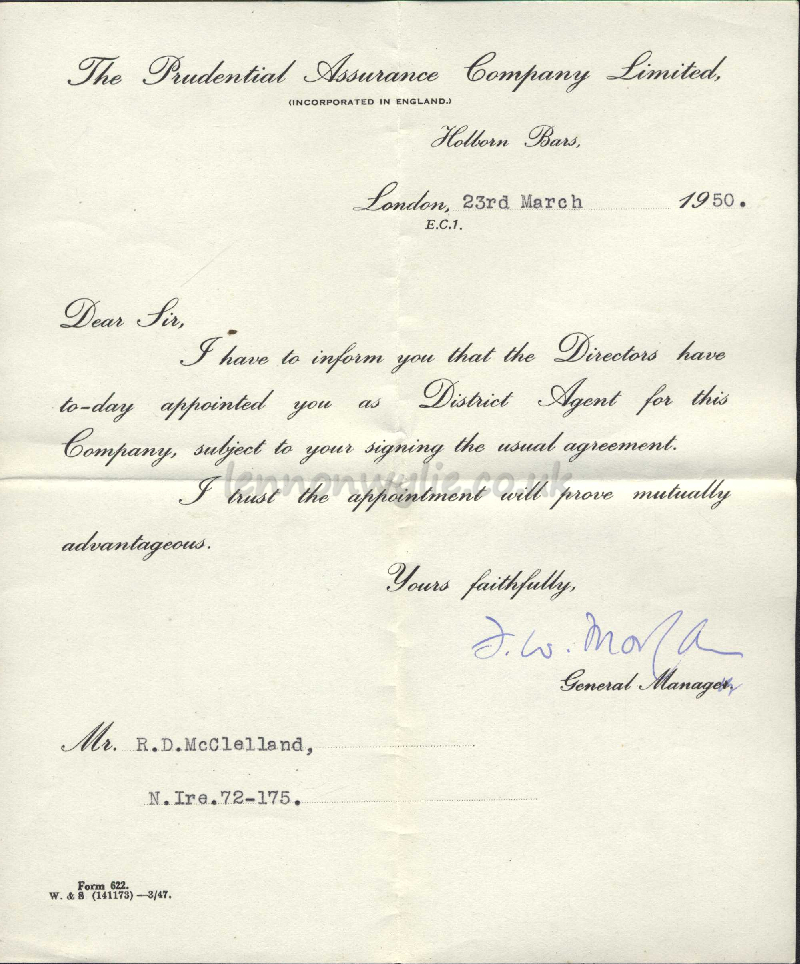 The Prudential Assurance Company Limited,
(INCORPORATED IN ENGLAND.)
Holborn Bars,
London, 23rd March 1950.
E.C.1.
Dear Sir,
I have to inform you that the Directors have
to-day appointed you as District Agent for this
Company, subject to your signing the usual agreement.
lennonwylie.co.uk
I trust the appointment will prove mutually
advantageous.
Yours faithfully,
F. W. Morgan
General Manager.
Mr. R.D.McClelland,
N.Ire.72-175.
Form 622.
W. & S (141173)—3/47.